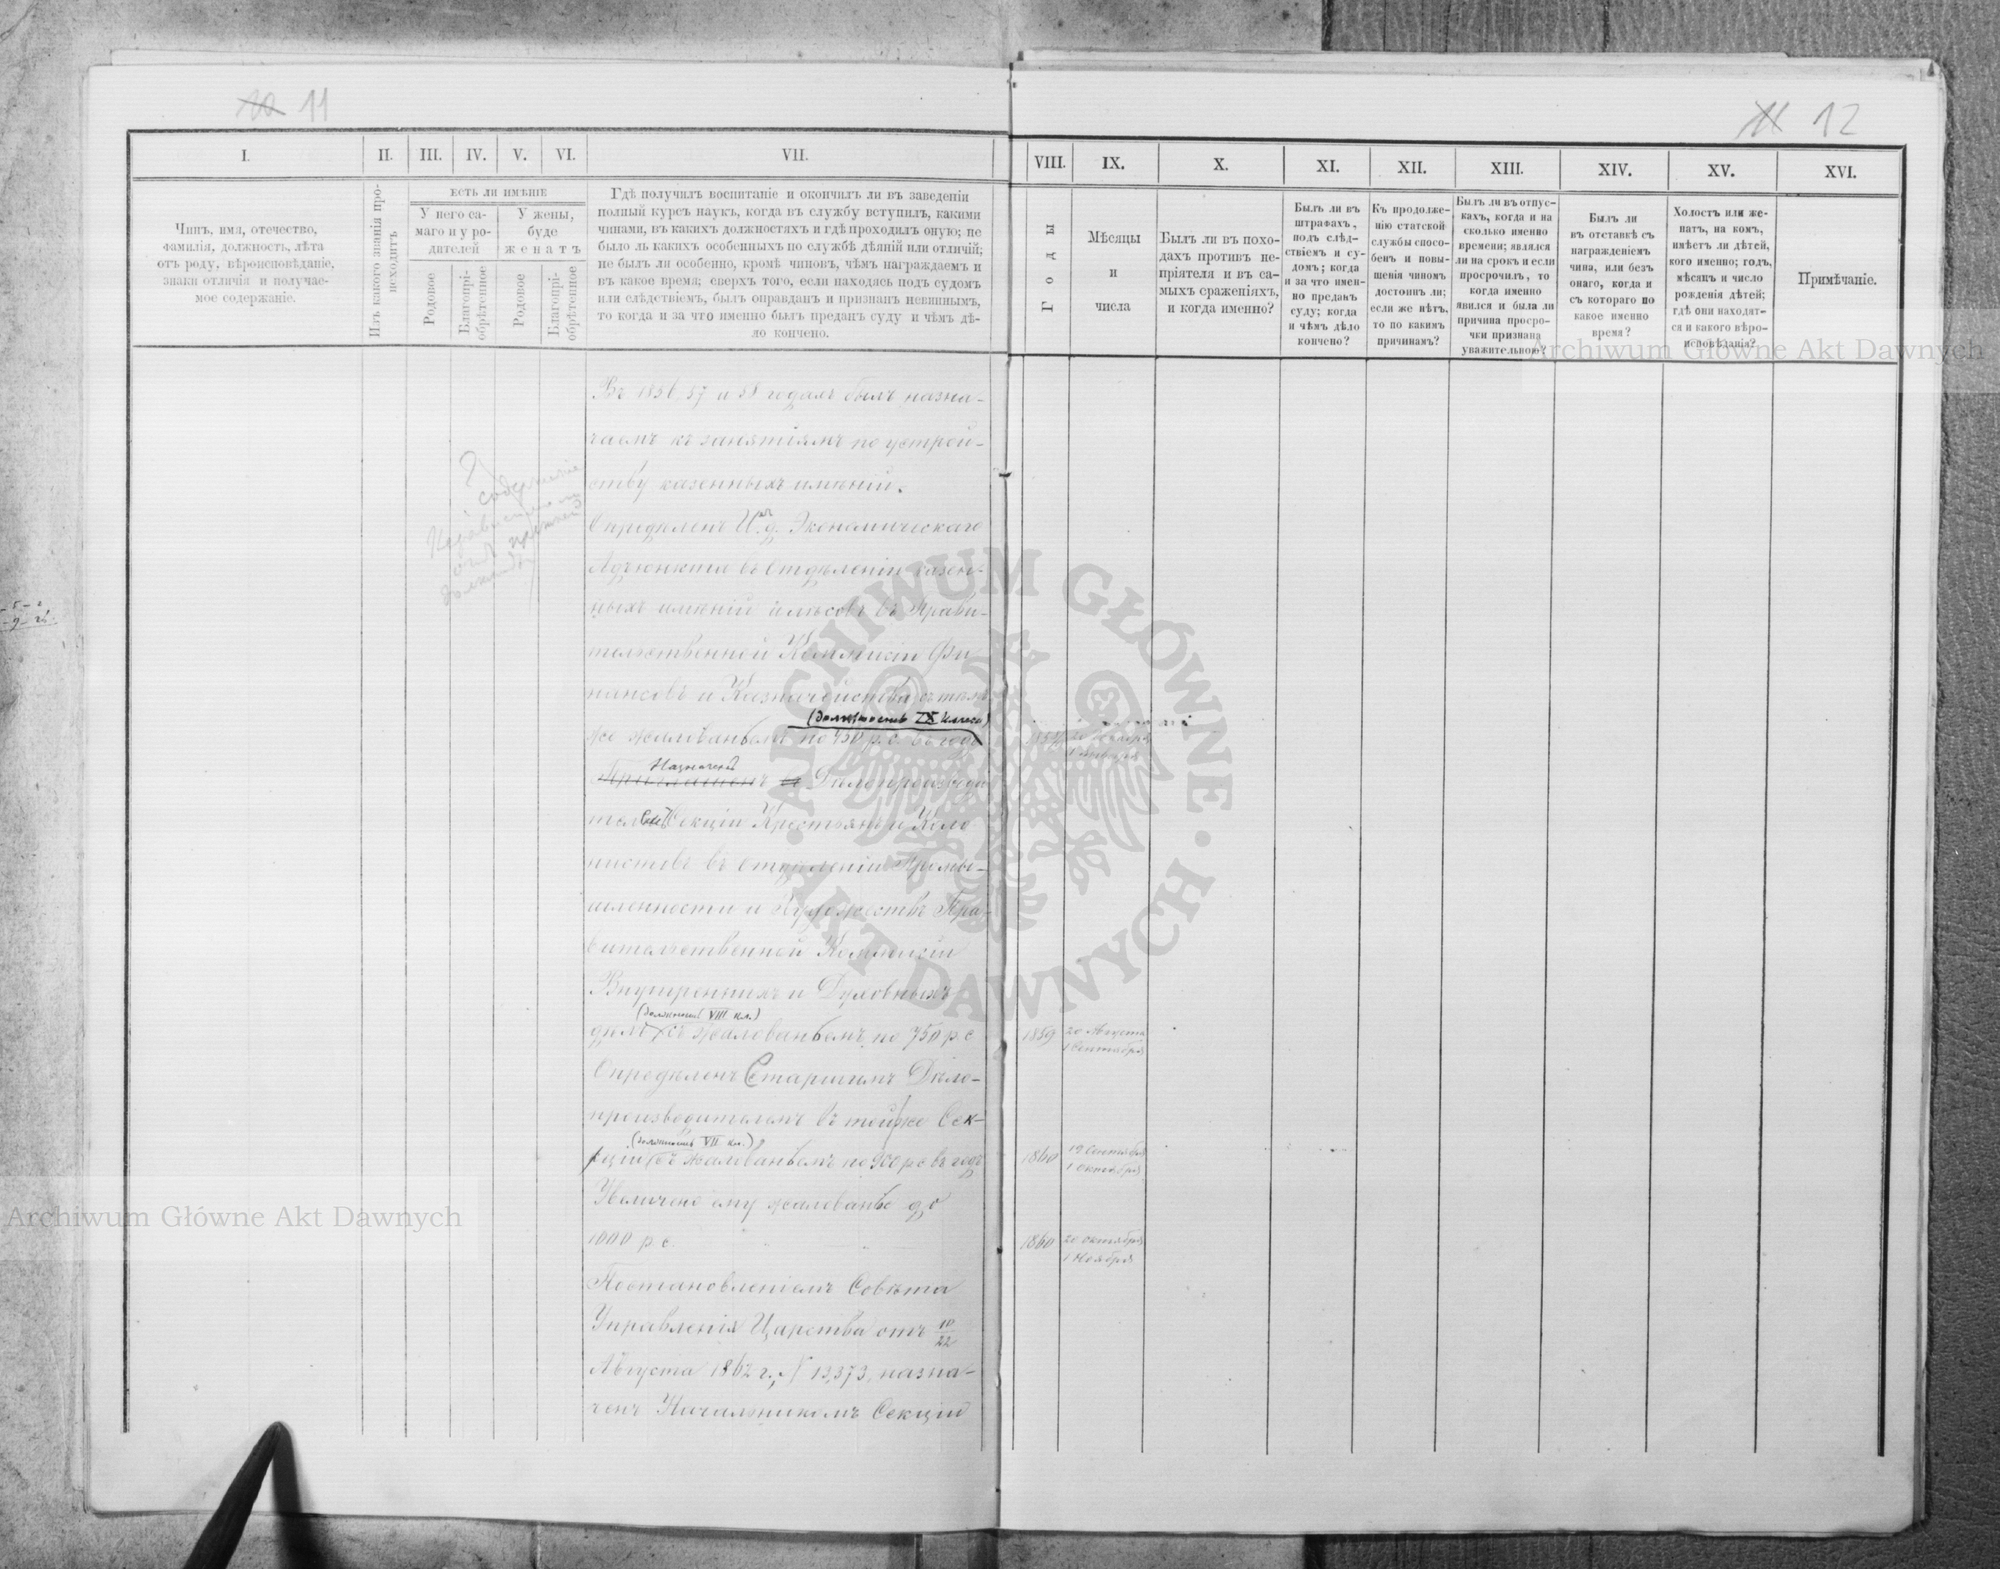 10 11
11 12
I. II. III. IV. V. VI. VII. VIII. IX. X. XI. XII. XIII. XIV. XV. XVI.
Чинъ, имя, отечество,
фамилія, должность, лѣта
отъ роду, вѣроисповѣданіе,
знаки отличія и получае-
мое содержаніе.
Изъ какого званія про-
исходитъ
ЕСТЬ ЛИ ИМѢНІЕ
У него са-
маго и у ро-
дителей
У жены,
буде
женатъ
Родовое
Благопрі-
обрѣтенное
Родовое
Благопрі-
обрѣтенное
Гдѣ получилъ воспитаніе и окончилъ ли въ заведеніи
полный курсъ наукъ, когда въ службу вступилъ, какими
чинами, въ какихъ должностяхъ и гдѣ проходилъ оную; не
было ль какихъ особенныхъ по службѣ дѣяній или отличій;
не былъ ли особенно, кромѣ чиновъ, чѣмъ награждаемъ и
въ какое время; сверхъ того, если находясь подъ судомъ
или слѣдствіемъ, былъ оправданъ и признанъ невиннымъ,
то когда и за что именно былъ преданъ суду и чѣмъ дѣ-
ло кончено.
Годы
Мѣсяцы
и
числа
Былъ ли въ похо-
дахъ противъ не-
пріятеля и въ са-
мыхъ сраженіяхъ,
и когда именно?
Былъ ли въ
штрафахъ,
подъ слѣд-
ствіемъ и су-
домъ; когда
и за что имен-
но преданъ
суду; когда
и чѣмъ дѣло
кончено?
Къ продолже-
нію статской
службы спосо-
бенъ и повы-
шенія чиномъ
достоинъ ли;
если же нѣтъ,
то по какимъ
причинамъ?
Былъ ли въ отпус-
кахъ, когда и на
сколько именно
времени; являлся
ли на срокъ и если
просрочилъ, то
когда именно
явился и была ли
причина просро-
чки признана
уважительною?
Былъ ли
въ отставкѣ съ
награжденіемъ
чина, или безъ
онаго, когда и
съ котораго по
какое именно
время?
Холостъ или же-
натъ, на комъ,
имѣетъ ли дѣтей,
кого именно; годъ,
мѣсяцъ и число
рожденія дѣтей;
гдѣ они находят-
ся и какого вѣро-
исповѣданія?
Примѣчаніе.
Въ 1856, 57 и 58 годахъ былъ назна-
чаемъ къ занятіямъ по устрой-
ству казенныхъ имѣній.
Опредѣленъ И. д. Экономическаго
Адъюнкта въ Отдѣленіи казен-
ныхъ имѣній и лѣсовъ въ Прави-
тельственной Коммисіи Фи-
нансовъ и Казначейства съ тѣмъ
(должность IX класса)
же жалованьемъ по 450 р. с. въ годъ
Назначенъ
Дѣлопроизводи
Секціи Крестьянъ и Коло
нистовъ въ Отдѣленіи Промы-
шленности и Художествъ Пра-
вительственной Коммисіи
Внутреннихъ и Духовныхъ
(должность VIII кл.)
дѣлъ съ жалованьемъ по 750 р. с 1859 20 Августа
1 Сентября
Опредѣленъ Старшимъ Дѣло-
производителемъ въ той же Сек-
(должность VII кл.)
ціи съ жалованьемъ по 900 р. с. въ годъ 1860 19 Сентября
1 Октября
Увеличено ему жалованье до
1000 р. с. 1860 20 Октября
1 Ноября
Постановленіемъ Совѣта
Управленія Царства отъ 10/22
Августа 1862 г., N 13,373, назна-
ченъ Начальникомъ Секціи
Archiwum Główne Akt Dawnych
Archiwum Główne Akt Dawnych
ARCHIWUM GŁÓWNE AKT DAWNYCH